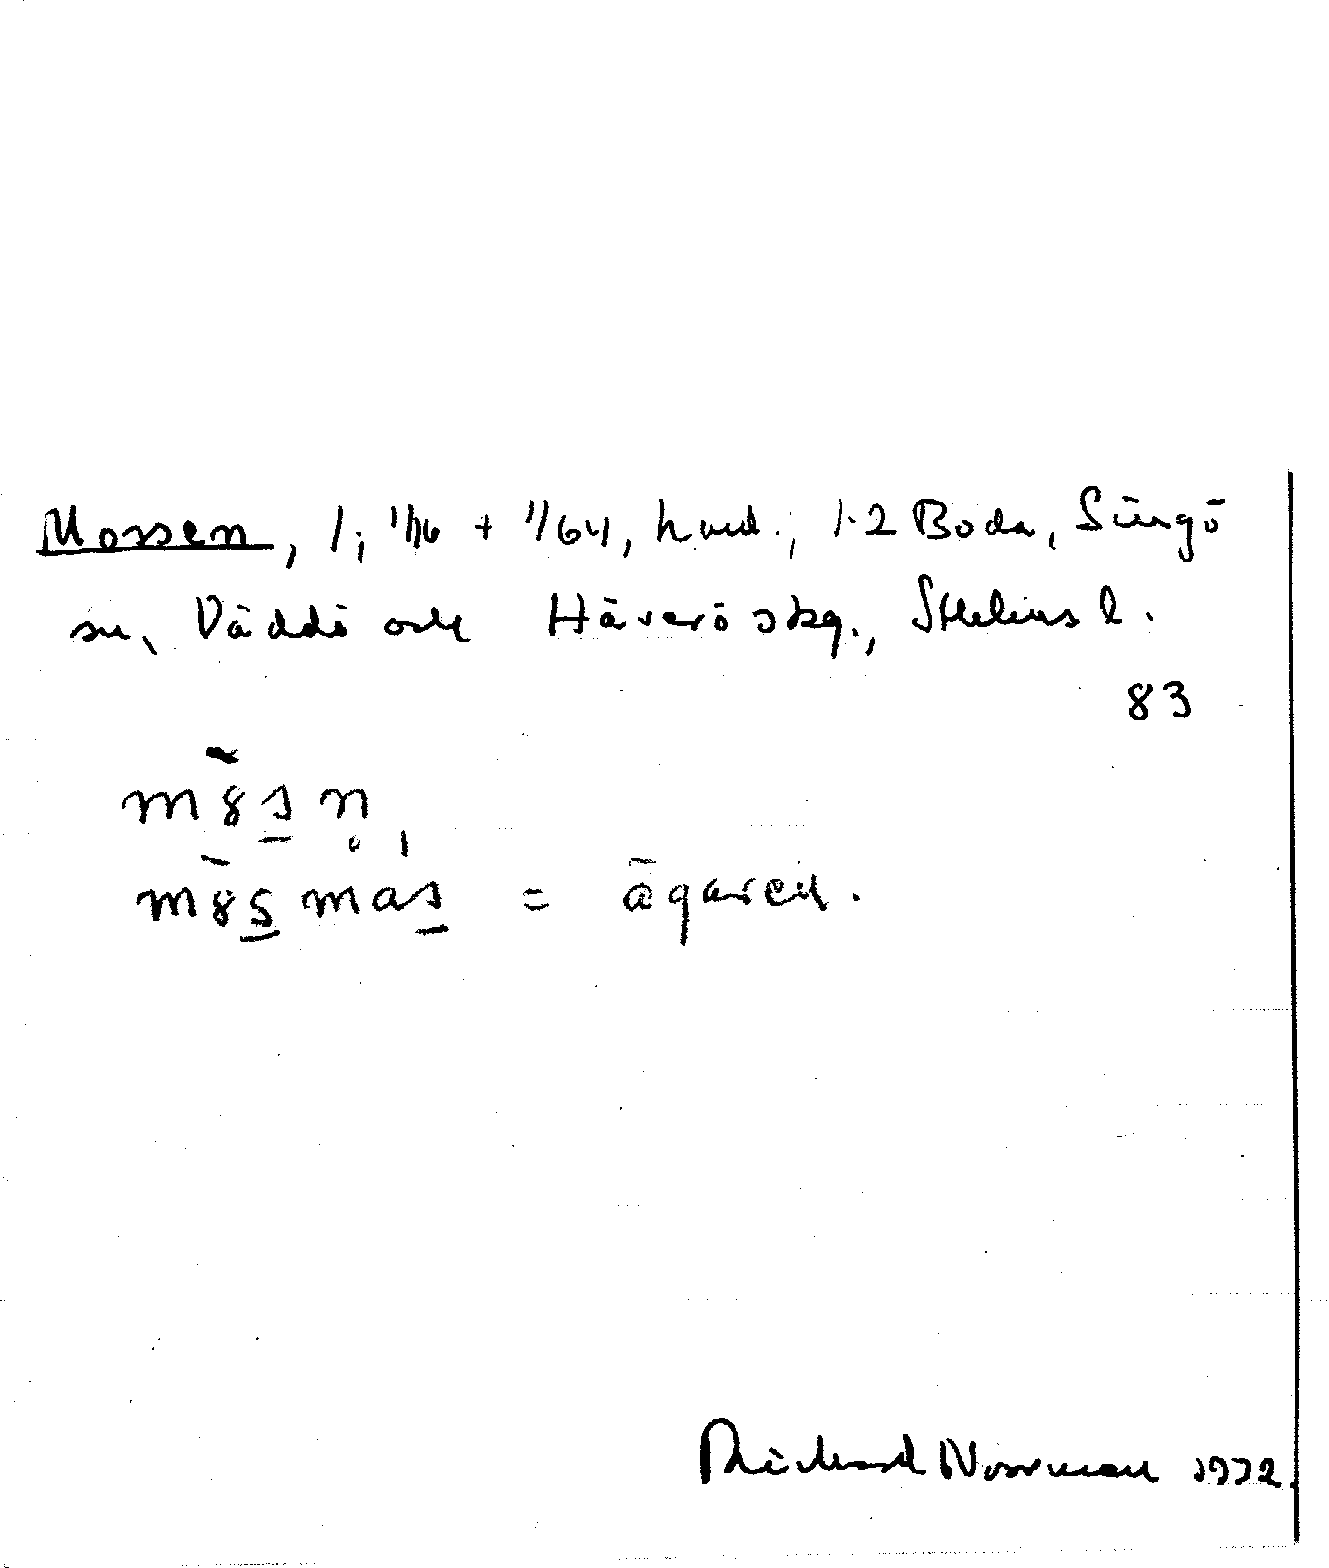 Mossen, 1, 1/16 + 1/64, hmd., 1-2 Boda, Singö
sn, Väddö och Häverö skg., Sthlms l.
83
m 8 s n,
m8s mas = ägaren.
Richard Norrman 1972.